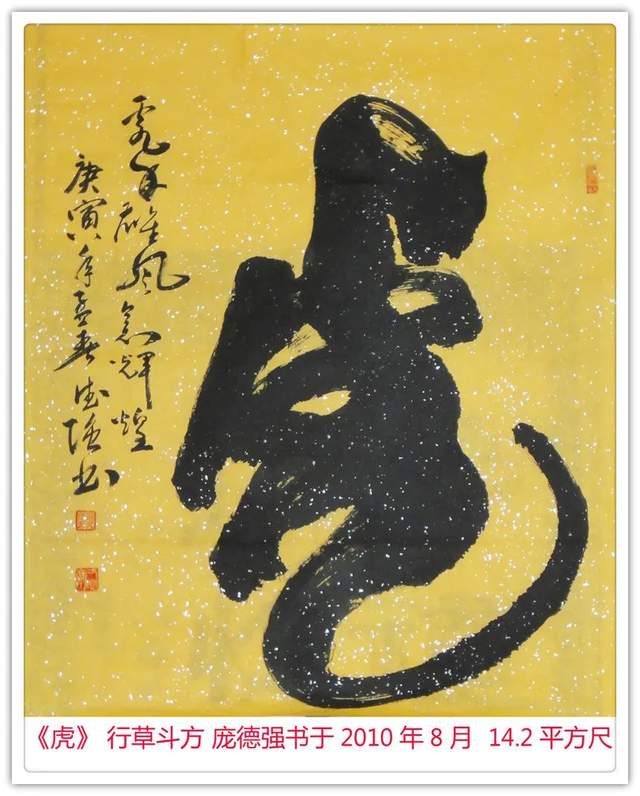 虎
虎年雄风辉煌
庚寅年孟春德强书
《虎》 行草斗方 庞德强书于 2010 年 8 月 14.2 平方尺